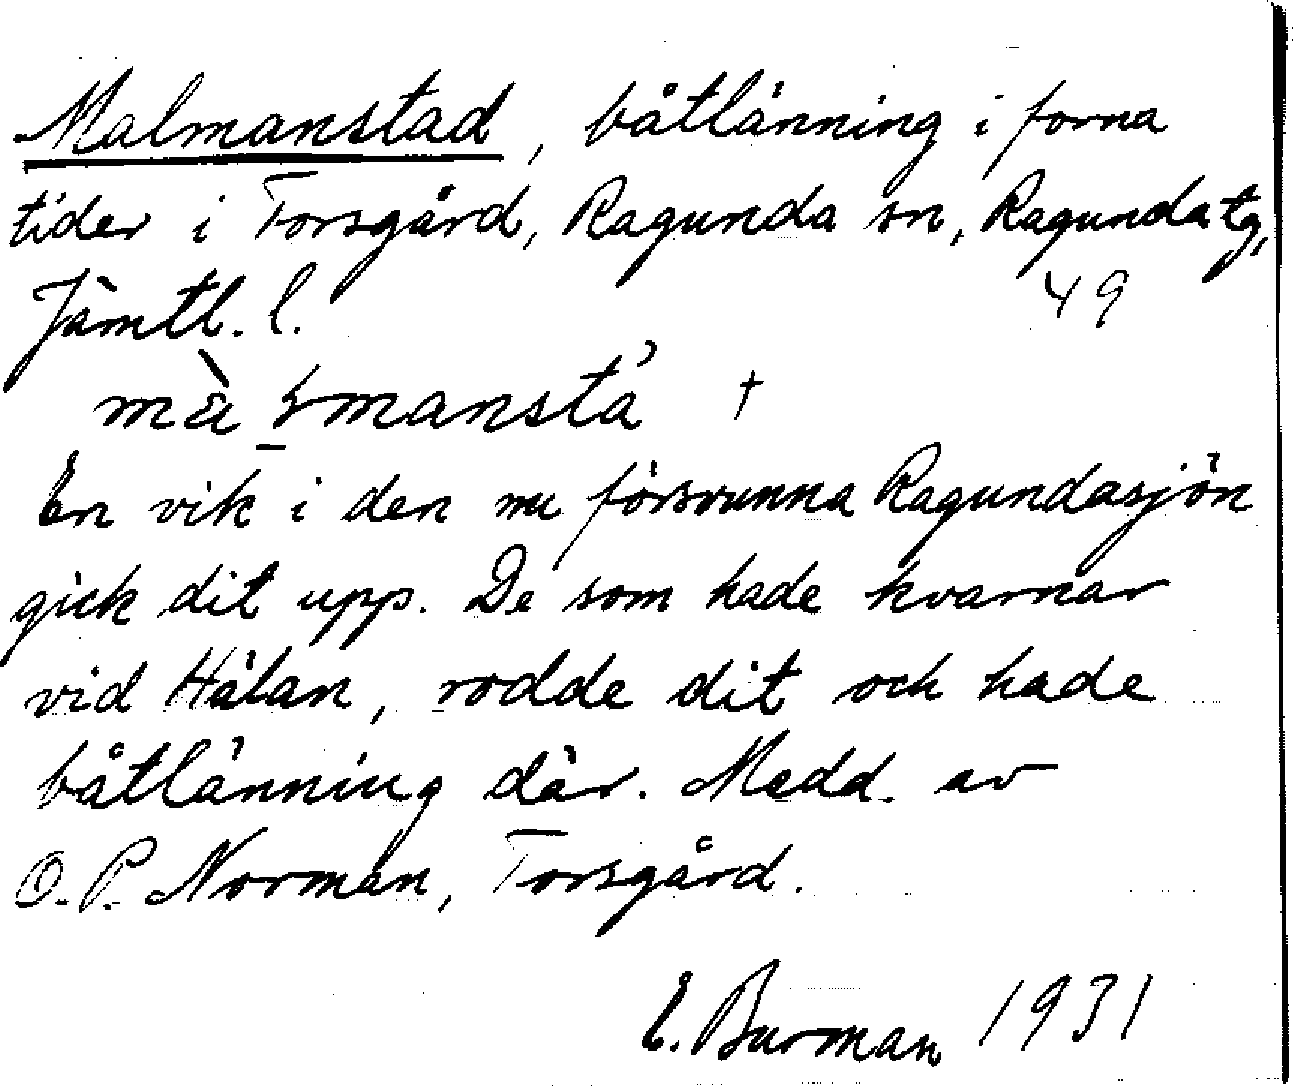 Malmanstad, båtlänning i forna
tider i Torsgård, Ragunda sn, Ragunda tg,
Jämtl. l. 49
En vik i den nu försvunna Ragundasjön
gick dit upp. De som hade kvarnar
vid Hålan, rodde dit och hade
båtlänning där. Medd. av
O. P. Norman, Torsgård.
E. Burman 1931